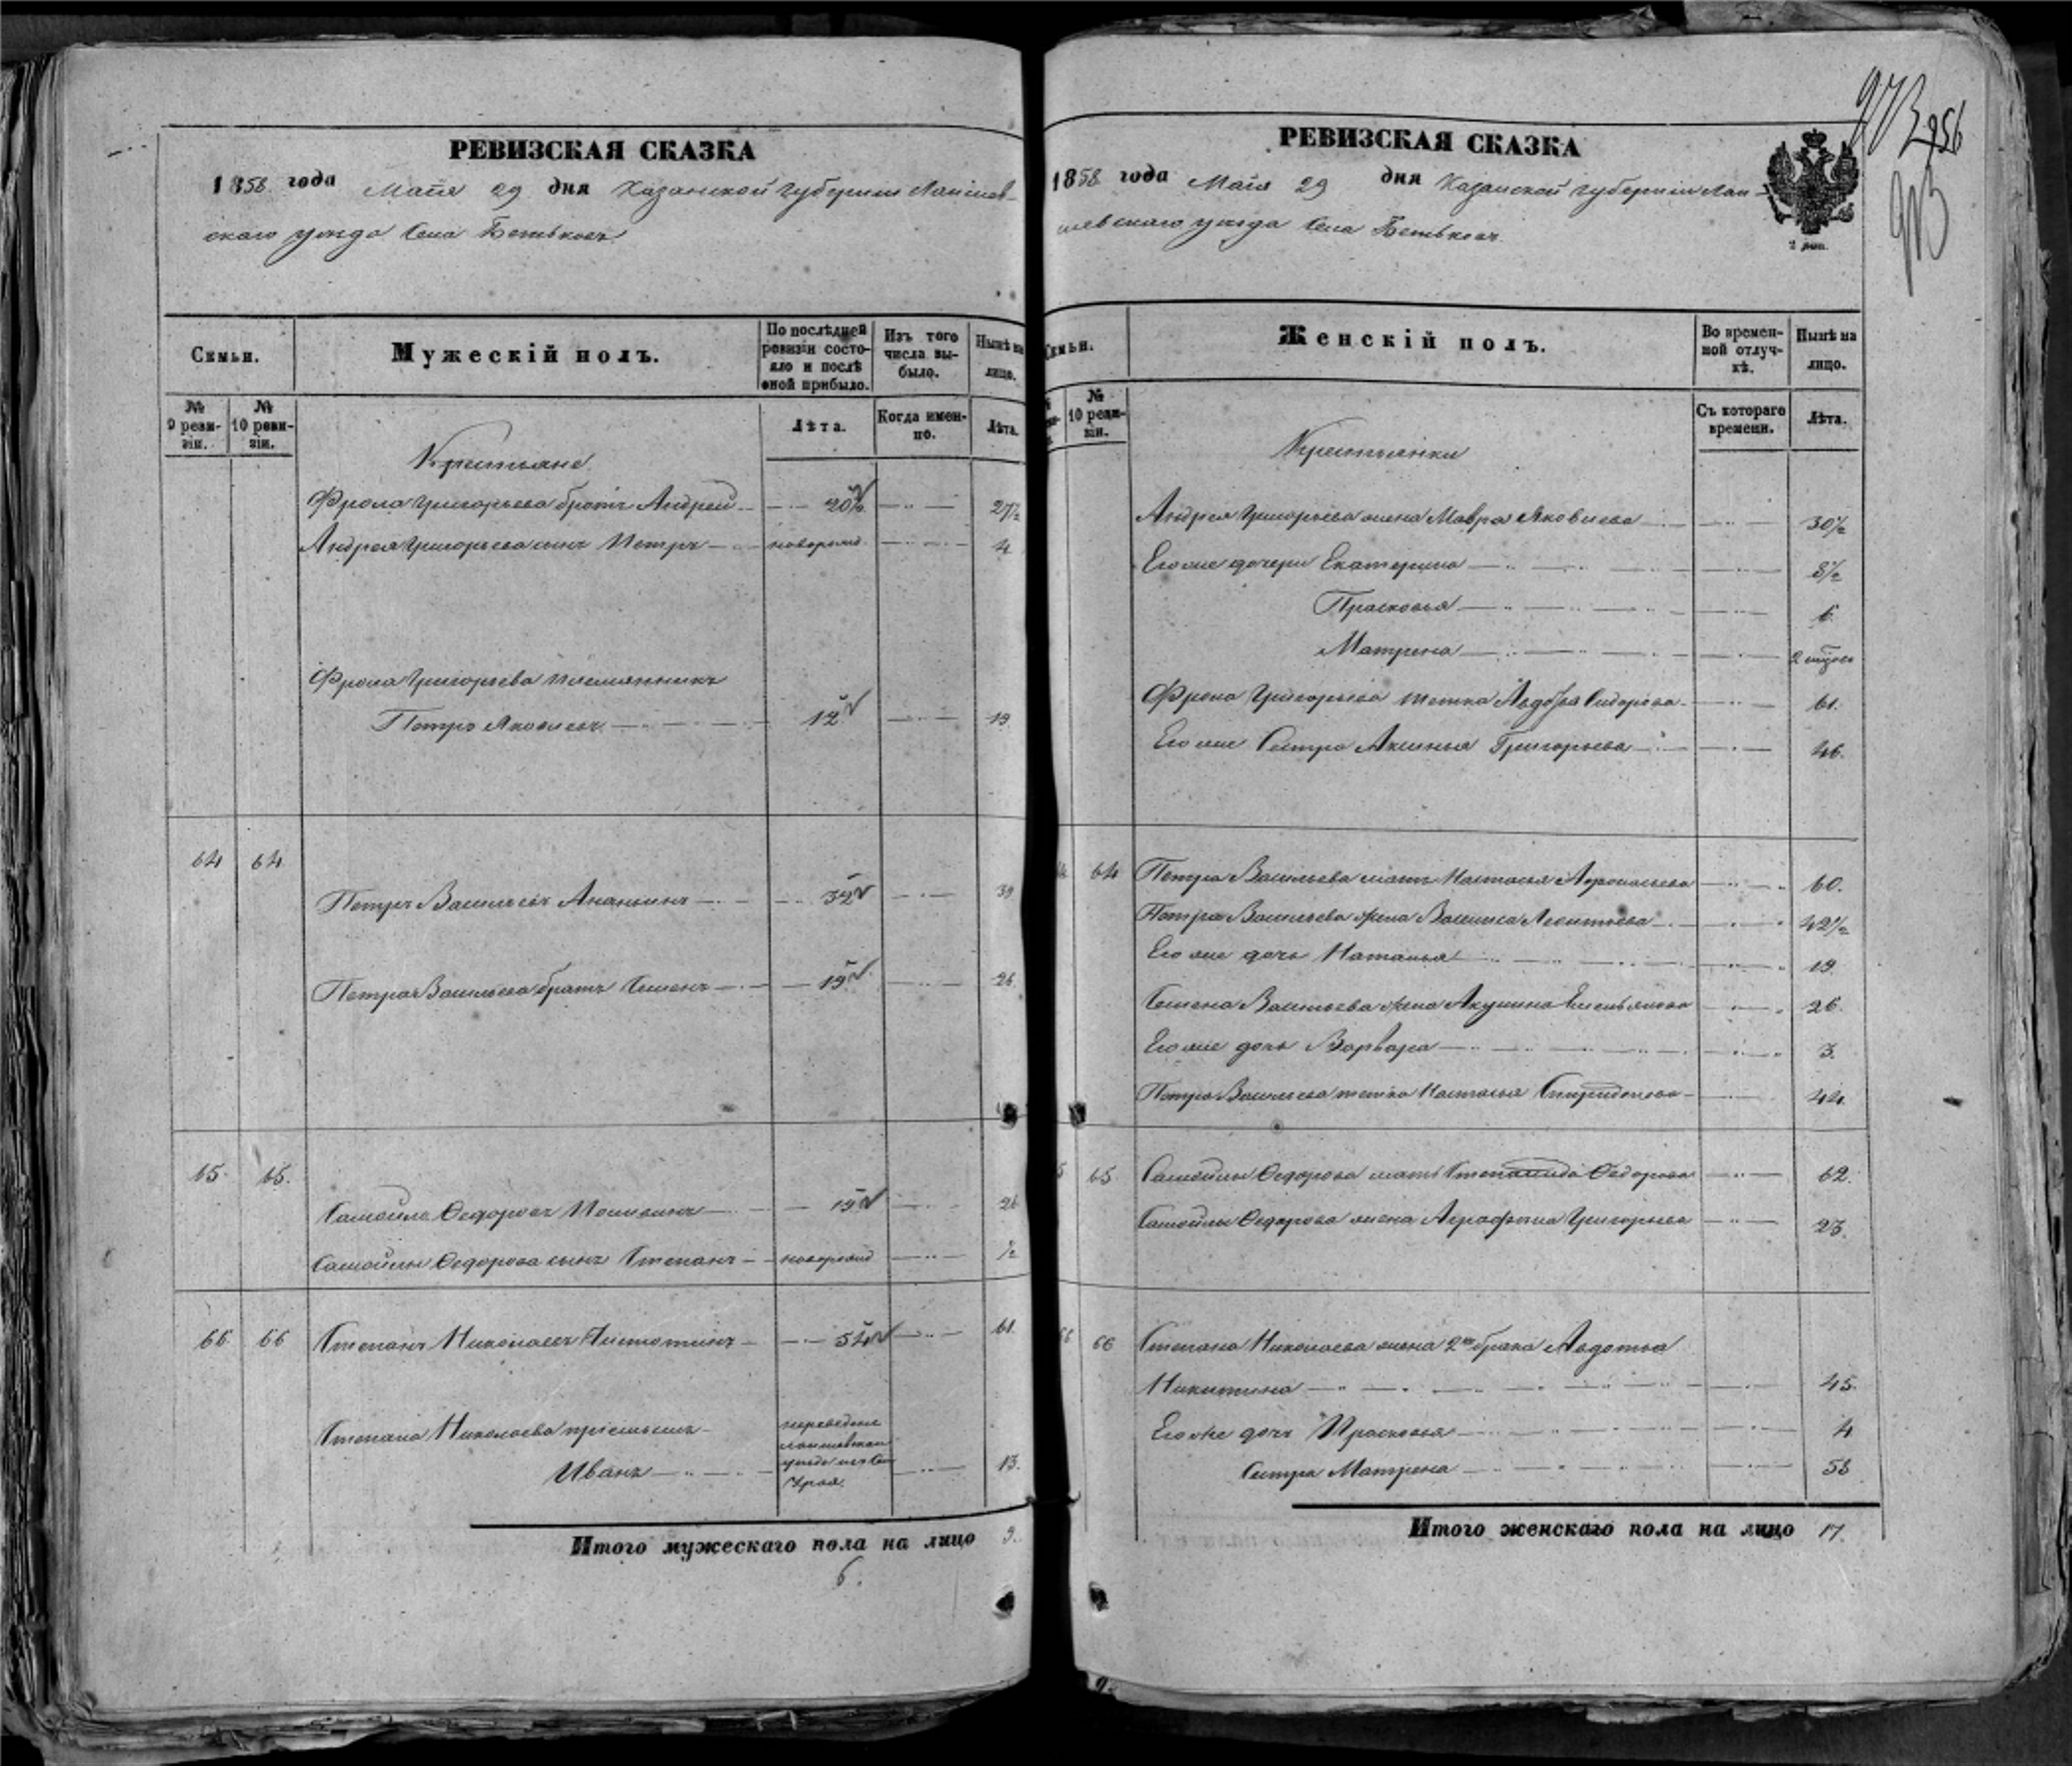 РЕВИЗСКАЯ СКАЗКА
1858 года Мая 29 дня Казанской губернии Лаишев-
скаго уезда Села Бетьковъ
Семьи.
Мужескій полъ.
По послѣдней ревизіи состояло и послѣ оной прибыло.
Изъ того числа выбыло.
Нынѣ на лицо.
№ 9 ревизіи.
№ 10 ревизіи.
Лѣта.
Когда именно.
Лѣта.
Крестьяне
Фрола Григорьева братъ Андрей 20½ 27½
Андрея Григорьева сынъ Петръ новорожд. 4
Фрола Григорьева племянникъ
Петръ Яковлевъ 12 19
64 64
Петръ Васильевъ Ананьинъ 32 39
Петра Васильева братъ Семенъ 19 26
65 65.
Самойла Ѳедоровъ 19 26
Самойлы Ѳедорова сынъ Степанъ новорожд ½
66 66 Степанъ Николаевъ 54 61
Степана Николаева пріемышъ
Иванъ 13.
переведенъ
лаишевскаго
уезда изъ села
Урая.
Итого мужескаго пола на лицо 9.
6.
РЕВИЗСКАЯ СКАЗКА
1858 года Мая 29 дня Казанской губерніи Лаи-
шевскаго уезда Села Бетьковъ
2 коп.
273
256
Семьи.
Женскій полъ.
Во временной отлучкѣ.
Нынѣ на лицо.
№ 10 ревизіи.
Съ котораго времени.
Лѣта.
Крестьянки
Андрея Григорьева жена Мавра Яковлева 30½
Его же дочери Екатерина 8½
Прасковья 6
Матрена 2 
Фрола Григорьева тетка Авдотья Сидорова 61.
Его же Сестра Аксинья Григорьева 46.
64 Петра Васильева мать Настасья 60.
Петра Васильева жена Василиса Леонтьева 42½
Его же дочь Наталья 19.
Семена Васильева жена Акулина Емельянова 26.
Его же дочь Варвара 3.
Петра Васильева тетка Настасья Спиридонова 44.
65 Самойлы Ѳедорова мать Степанида Ѳедорова 62.
Самойлы Ѳедорова жена Аграфена Григорьева 23.
66 66 Степана Николаева жена 2го брака Авдотья
Никитина 45.
Его же дочь Прасковья 4
Сестра Матрена 58
Итого женскаго пола на лицо 17.